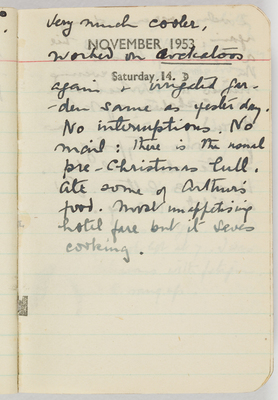 very much cooler,
NOVEMBER 1953
worked on cockatoos
Saturday 14.
again & irrigated gar-
den same as yesterday.
No interruptions. No
mail: There is the usual
pre-Christmas lull.
Ate some of Arthurs
food. Most unappetising
hotel fare but it saves
cooking.